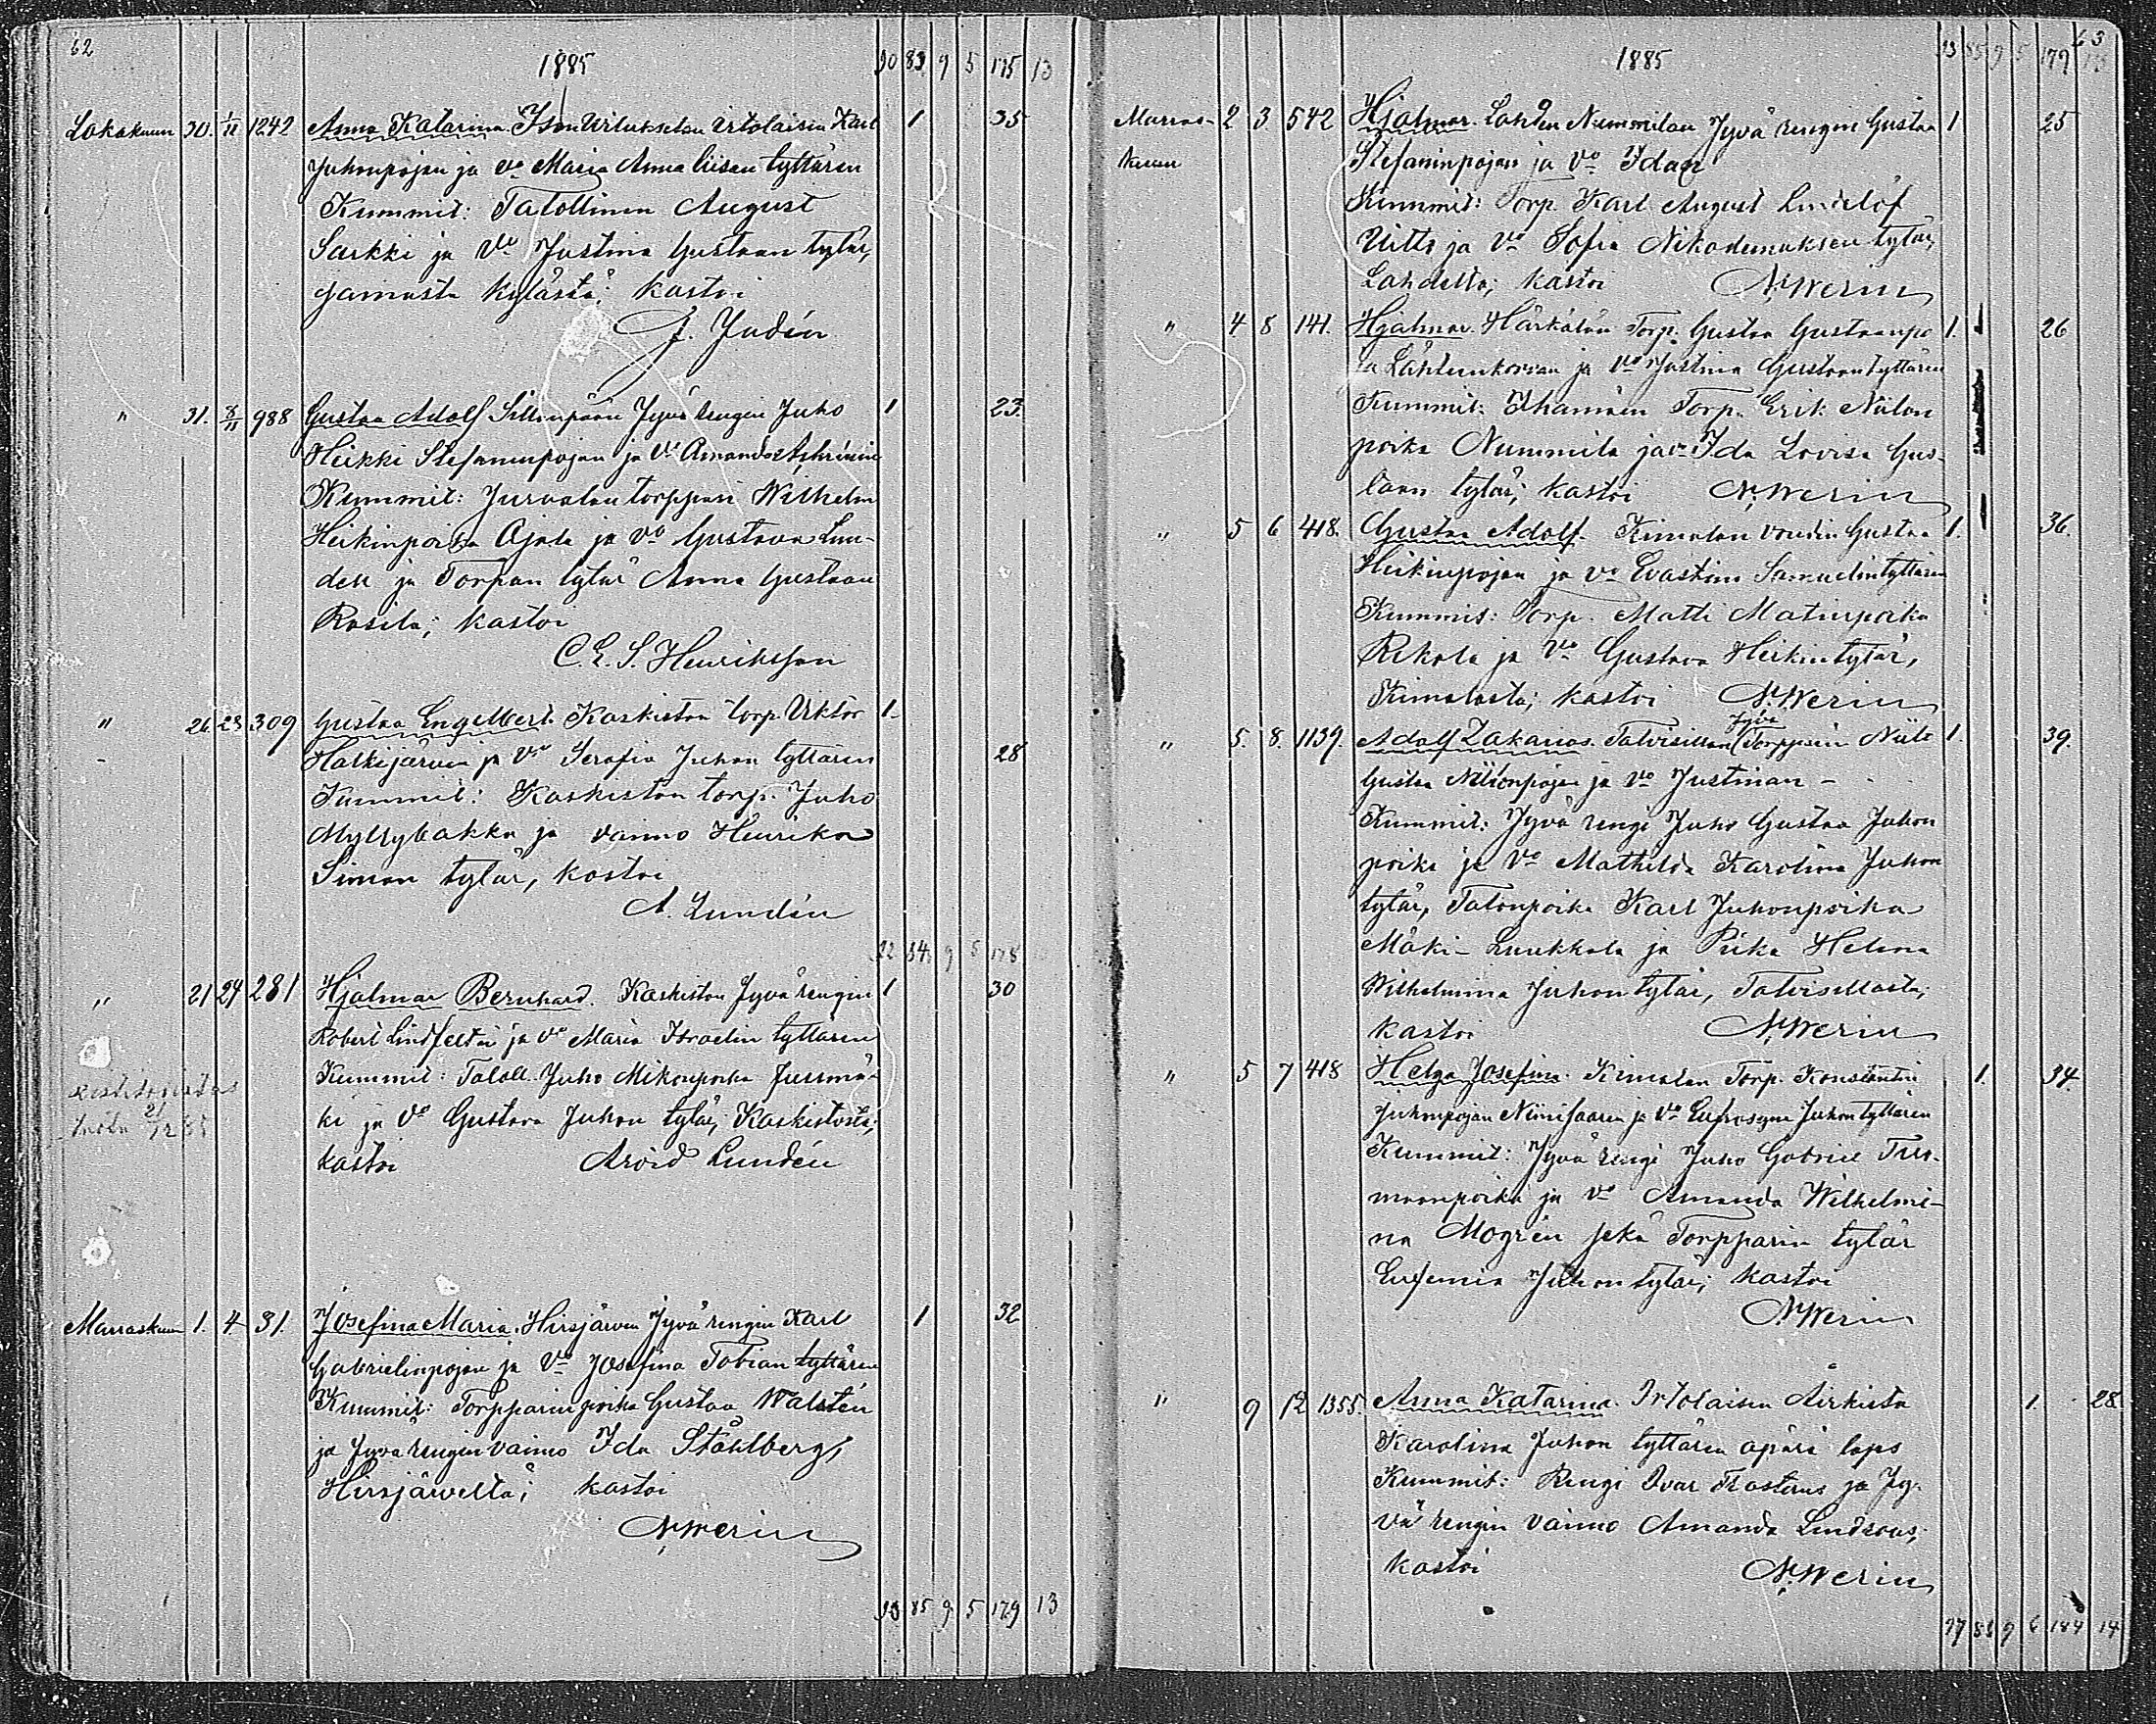 62
1885 90 83 9 5 175 13
Lokakuun 30. 1/11 1242 Anna Katarina. Ison Urilukselan Irtolaisen Karl 1 35
Juhonpojan ja vo Maria Anna Liisan tyttären
Kummit: Talollinen August
Sarkki ja Vo Justina Gustaan tytär,
samasta kylästä; kastoi
J. Judén
" 31. 8/11 988 Gustaa Adolf Sillinpään Jyvä rengin Juho 1 23.
Heikki Stefaninpojan ja Vo Amanda
Kummit: Jurvalan torppari Wilhelm
Heikinpoika Ojala ja vo Gustava Lin-
den ja Torpan tytär Anna Gustaan
Rasila; kastoi
C. E. S. Henriksson
" 26. 23 309 Gustaa Engelbert. Kaskiston torp. Viktor 1
Halkijärven ja Vo Serafia Juhon tyttären 28
Kummit: Kaskiston torp. Juho
Myllybakka ja vaimo Henrika
Simon tytär, kastoi
A. Lundén
92 84 9 5 178
" 21 24 281 Hjalmar Bernhard. Kaskiston Jyvä rengin 1 30
Robert Lindfeltin ja vo Maria Israelin tyttären
Kummit: Taloll. Juho Mikonpoika Jussmä-
ki ja Vo Gustava Juhon tytär, Kaskistosta;
kastoi Arvid Lundén
Marraskuun 1. 4 31. Josefina Maria. Hirsjärven Jyvä rengin Karl 1 32
Gabrielinpojan ja Vo Josefina Tobian tyttären
Kummit: Torpparin poika Gustaa Walstén
ja Jyvä rengin vaimo Ida Ståhlberg,
Hirsjärveltä; kastoi
N. Werin
93 85 9 5 179 13
63
1885 93 85 9 5 179 13
Marras- 2 3. 542 Hjalmar. Lahden Nummilan Jyvä rengin Gustaa 1 25
kuun Stefaninpojan ja Vo Idan
Kummit: Torp. Karl August Lindelöf
Uitto ja Vo Sofia Nikodemuksen tytär,
Lahdelta; kastoi N. Werin
" 4 8 141. Hjalmar. Härkälän Torp. Gustaa Gustaanpo 1. 26
ja Lähteenkorvan ja Vo Justina Gustaan tyttären
Kummit: Ihamäen Torp. Erik Niilon
poika Nummila ja vo Ida Lovisa Gus-
taan tytär; kastoi N. Werin
" 5 6 418. Gustaa Adolf. Kimalan voudin Gustaa 1. 36.
Heikinpojan ja Vo Evastina Samuelin tyttären
Kummit: Torp. Matti Matinpoika
Rekola ja Vo Gustava Heikin tytär,
Kimalasta; kastoi N. Werin
Jyvä
" 5. 8. 1139. Adolf Zakarias. Talvisillan Torpparin Niilo 1. 39.
Gustaa Niilonpojan ja Vo Justinan –
Kummit: Jyvä rengi Juho Gustaa Juhon
poika ja Vo Mathilda Karolina Juhon
tytär, Talonpoika Karl Juhonpoika
Mäki-Luukkala ja Piika Helena
Wilhelmina Juhon tytär, Talvisillasta;
kastoi N. Werin
" 5 7 418 Helga Josefina. Kimalan Torp. Konstantin 1. 34.
Juhonpojan Niinisaaren ja Vo Eufrosyne Juhon tyttären
Kummit: Jyvä rengi Juho Gabriel Tuo-
maanpoika ja Vo Amanda Wilhelmi-
na Mogrén sekä Torpparin tytär
Eufemia Juhon tytär; kastoi
N. Werin
" 9 12 1355. Anna Katarina. Irtolaisen Airikista 1. 28
Karolina Juhon tyttären äpärä laps
Kummit: Rengi Ivar Rosterus ja Jy-
vä rengin vaimo Amanda Lindroos;
kastoi N. Werin
97 86 9 6 184 14